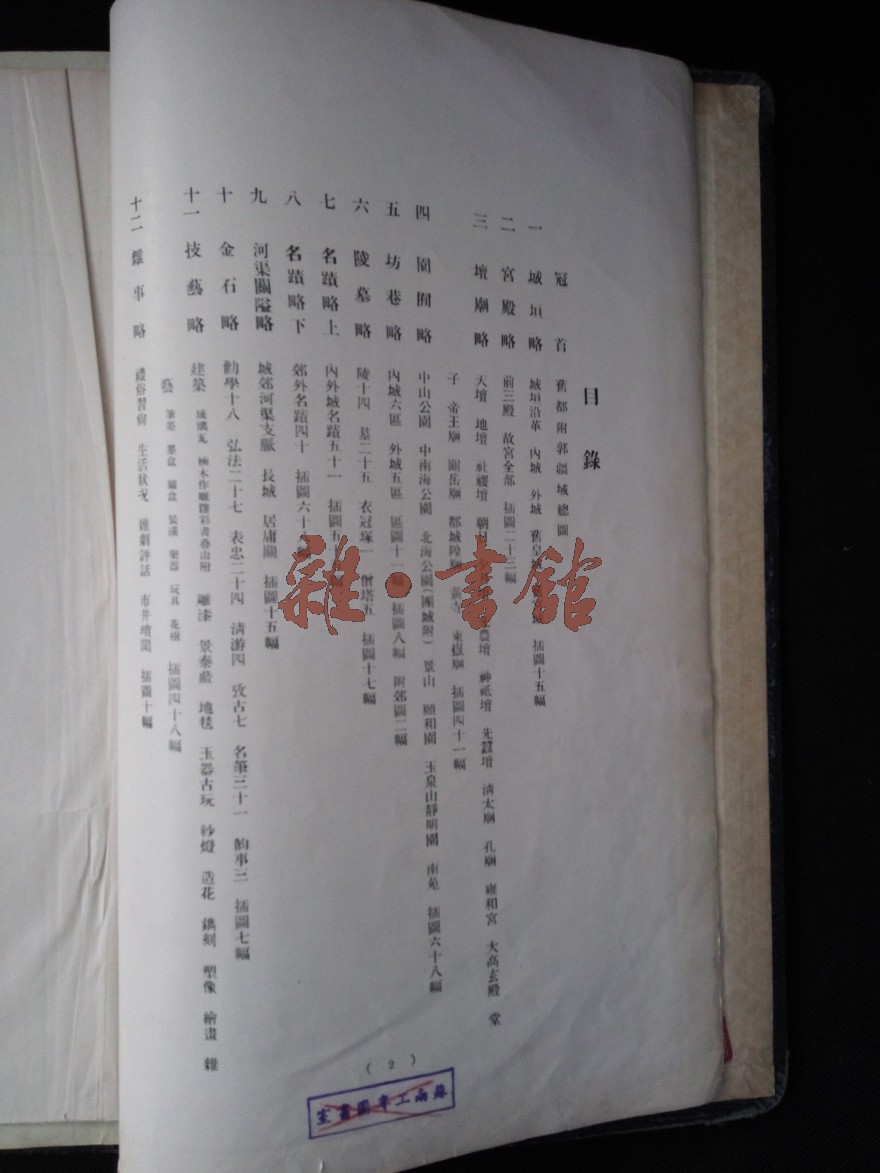 目錄
冠首 舊都附郭疆域總圖
一 城垣略 城垣沿革 內城 外城 舊皇城 插圖十五幅
二 宮殿略 前三殿 故宮全部 插圖二十三幅
三 壇廟略 天壇 地壇 社稷壇 朝日 農壇 神祇壇 先蠶壇 清太廟 孔廟 雍和宮 大高玄殿 堂
子 帝王廟 關岳廟 都城隍廟 黃寺 東嶽廟 插圖四十一幅
四 園囿略 中山公園 中南海公園 北海公園(團城附) 景山 頤和園 玉泉山靜明園 南苑 插圖六十八幅
五 坊巷略 內城六區 外城五區 區圖十一幅 插圖八幅 附郊圖二幅
六 陵墓略 陵十四 墓二十五 衣冠塚一 僧塔五 插圖十七幅
七 名蹟略上 內外城名蹟五十一 插圖五十
八 名蹟略下 郊外名蹟四十 插圖六十 幅
九 河渠關隘略 城郊河渠支脈 長城 居庸關 插圖十五幅
十 金石略 勸學十八 弘法二十七 表忠二十四 清游四 攷古七 名筆三十一 韵事三 插圖七幅
十一 技藝略 建築 琉璃瓦 雕漆 景泰藍 地毯 玉器古玩 紗燈 造花 鐫刻 塑像 繪畫 雜
藝 筆墨 墨盒 裝潢 樂器 玩具 花樹 插圖四十八幅
十二 雜事略 禮俗習尚 生活狀况 雜劇評話 市井瑣聞 插圖十幅
(2)
蘇南工專圖書室
雜·書館